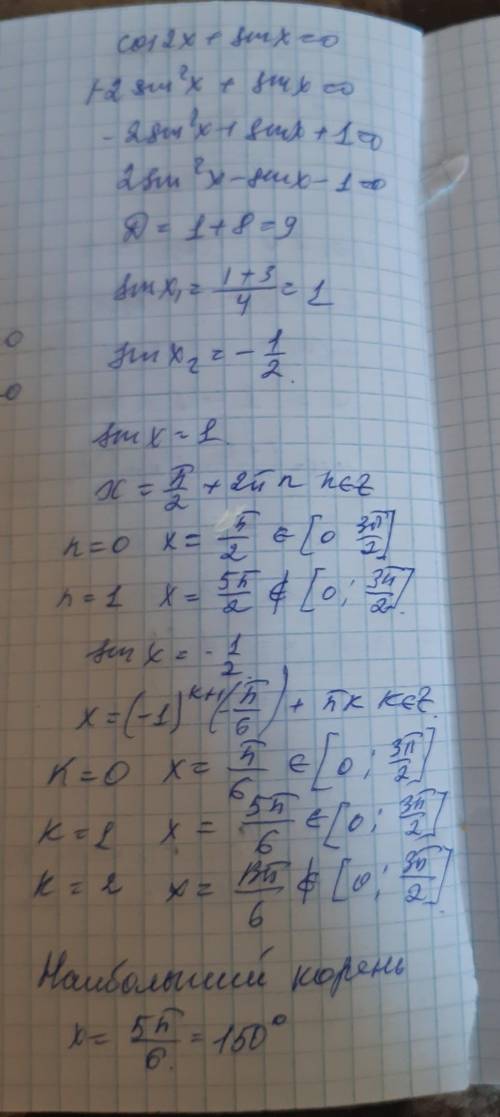 cos2x + sin x = 0
1-2 sin²x + sin x = 0
-2sin²x + sin x + 1 = 0
2sin²x - sin x - 1 = 0
D = 1+8 = 9
sin x₁ = (1+3)/4 = 1
sin x₂ = -1/2.
sin x = 1.
x = π/2 + 2πn n∈Z
n=0 x = π/2 ∈ [0 3π/2]
n=1 x = 5π/2 ∉ [0; 3π/2].
sin x = -1/2.
x = (-1)^(k+1) (π/6) + πk k∈Z.
K=0 x = π/6 ∈ [0; 3π/2]
K=1 x = 5π/6 ∈ [0; 3π/2]
K=2 x = 13π/6 ∉ [0; 3π/2].
Наибольший корень
x = 5π/6. = 150°